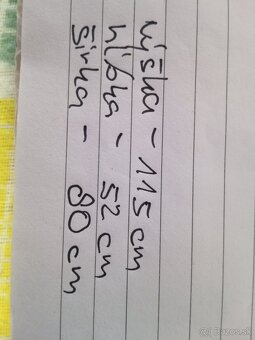 výška - 115 cm
hĺbka - 52 cm
šírka - 80 cm